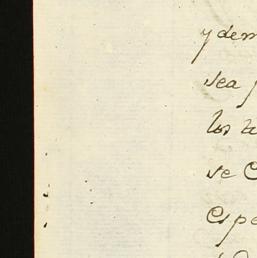 y dem
sea
los
se C
Espe